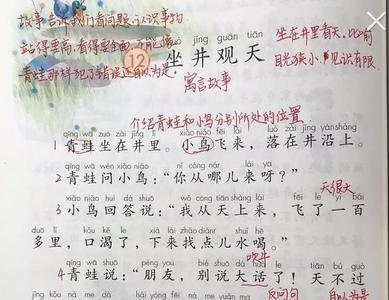 故事告诉我们看问题、认识事物
站得更高,看得更全面,不能像
青蛙那样犯了错误还自以为是。
坐在井里看天,比喻
目光狭小,见识有限
jǐng guān tiān
12 坐井观天
寓言故事
介绍青蛙和小鸟分别所处的位置
qīng wā zuò zài jǐng lǐ xiǎo niǎo fēi lái luò zài jǐng yán shàng
1 青蛙坐在井里。小鸟飞来,落在井沿上。
qīng wā wèn xiǎo niǎo nǐ cóng nǎr lái ya
2 青蛙问小鸟:“你从哪儿来呀?”
天很大
xiǎo niǎo huí dá shuō wǒ cóng tiān shàng lái fēi le yì bǎi
3 小鸟回答说:“我从天上来,飞了一百
duō lǐ kǒu kě le xià lái zhǎo diǎnr shuǐ hē
多里,口渴了,下来找点儿水喝。”
吹牛
qīng wā shuō péng you bié shuō dà huà le tiān bú guò
4 青蛙说:“朋友,别说大话了!天不过
jǐng kǒu nà me dà
反问句
自以为是